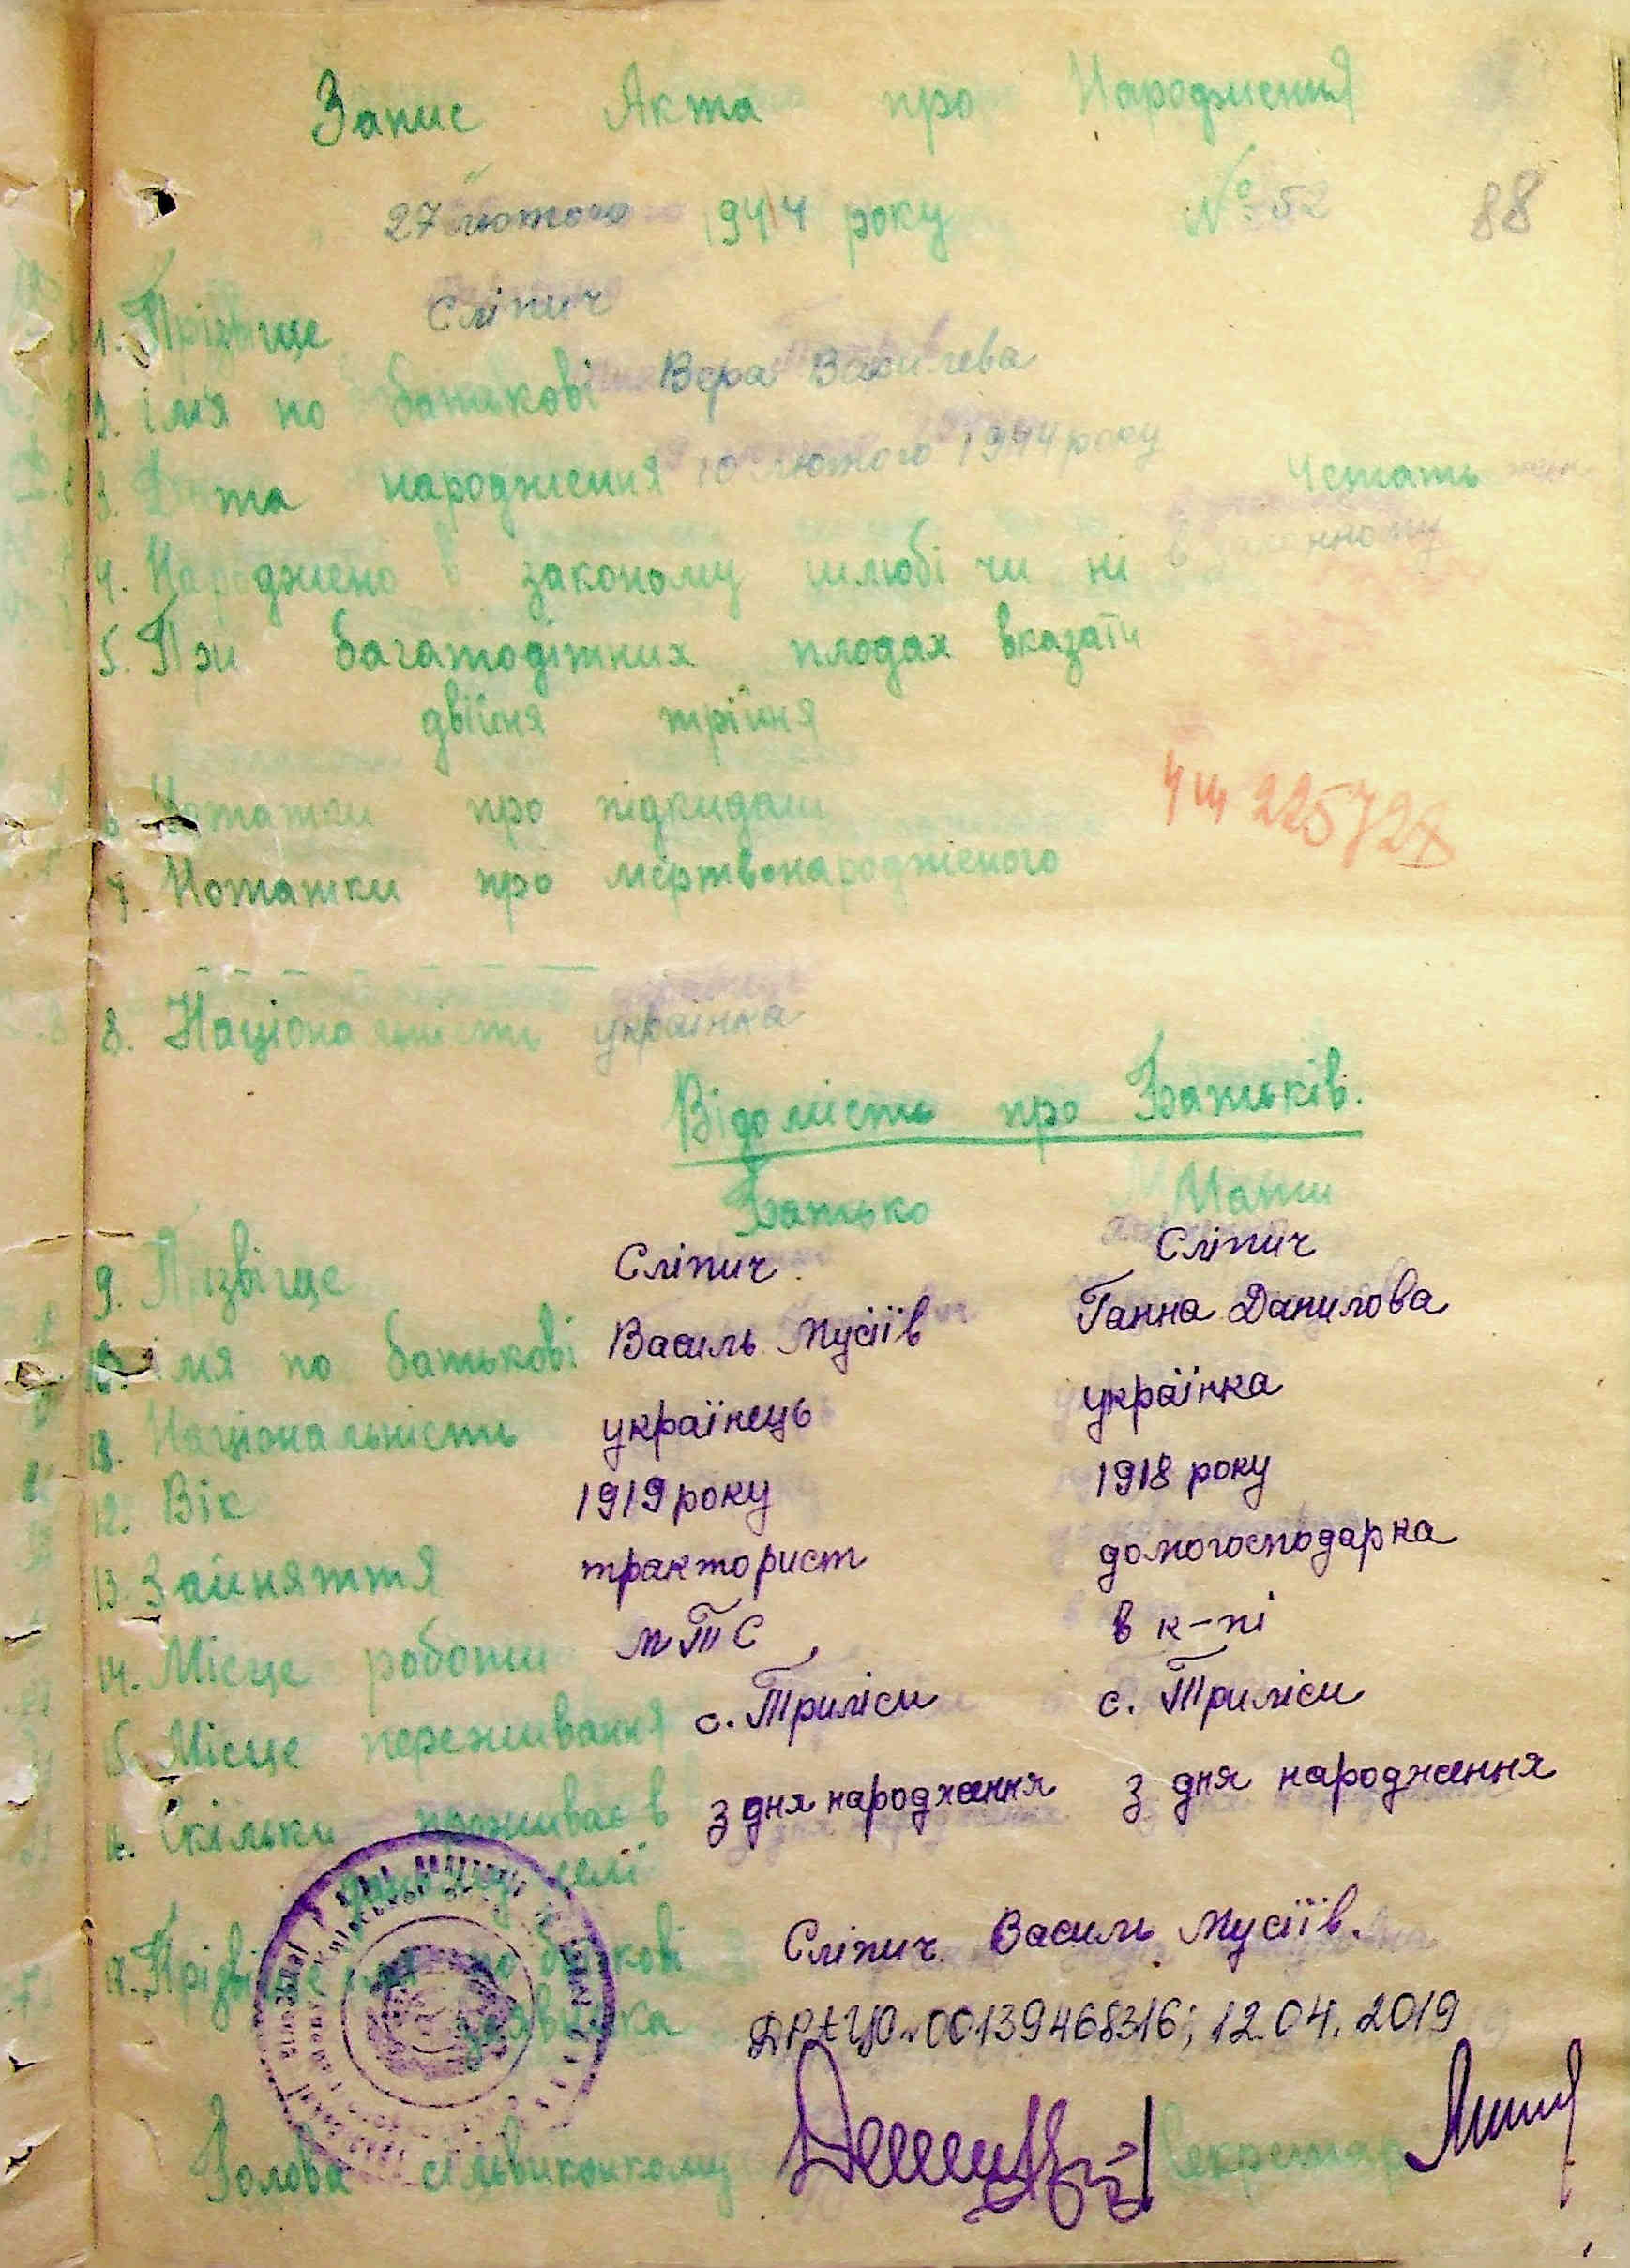 Запис Акта про Народження
27 лютого 1944 року № 52 88
1. Прізвище Сліпич
2. імя по батькові Вера Василева
3. Дата народження 10 лютого 1944 року
4. Народжено в законому шлюбі чи ні в законному
5. При багатодітних плодах вказати
двійня трійня
6. Нотатки про підкидаш
7. Нотатки про мертвонародженого
8. Національність українка
Відомість про Батьків.
Батько Мати
9. Прізвіще Сліпич Сліпич
10. імя по батькові Василь Мусіїв Ганна Данилова
Національність українець українка
12. Вік 1919 року 1918 року
13. Зайняття тракторист домогосподарка
14. Місце роботи МТС в к-пі
15. Місце переживання с. Триліси с. Триліси
16. Скільки проживає в з дня народження з дня народження
даному селі
17. Прізвіще імя по батькові Сліпич Василь Мусіїв.
00139468316; 12.04.2019
Голова сільвиконкому Секретар